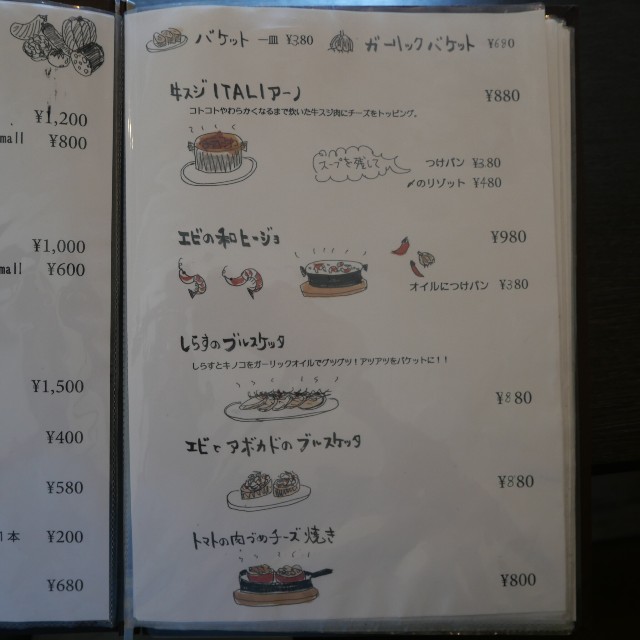 ¥1,200
mall ¥800
¥1,000
mall ¥600
¥1,500
¥400
¥580
1本 ¥200
¥680
バケット 一皿 ¥380 ガーリックバケット ¥680
牛スジITALIアーノ ¥880
コトコトやわらかくなるまで炊いた牛スジ肉にチーズをトッピング。
スープを残して つけパン ¥380
のリゾット ¥480
エビの和ヒージョ ¥980
オイルにつけパン ¥380
しらすのブルスケッタ
しらすとキノコをガーリックオイルでグツグツ!アツアツをバケットに!!
¥880
エビとアボカドのブルスケッタ
¥880
トマトの肉づめチーズ焼き
¥800